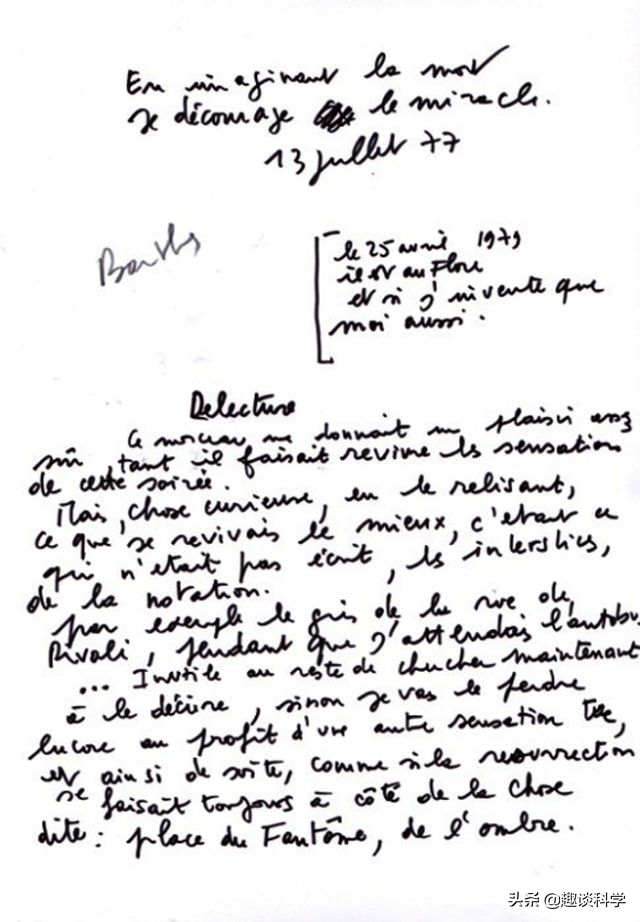 En imaginant la mort
je décourage le miracle.
13 juillet 77
Barthes
le 25 avril 1979
il est au Flore
et si j'invente que
moi aussi.
Relecture
Ce morceau me donnait un plaisir assez
sûr, tant il faisait revivre les sensations
de cette soirée.
Mais, chose curieuse, en le relisant,
ce que je revivais le mieux, c'était ce
qui n'était pas écrit, les interstices,
de la notation.
par exemple le gris de la rue de
Rivoli, pendant que j'attendais l'autobus
... Inutile au reste de chercher maintenant
à le décrire, sinon je vas le perdre
encore au profit d'une autre sensation tue,
et ainsi de suite, comme si la resurrection
se faisait toujours à côté de la chose
dite : place du Fantôme, de l'ombre.
头条 @趣谈科学